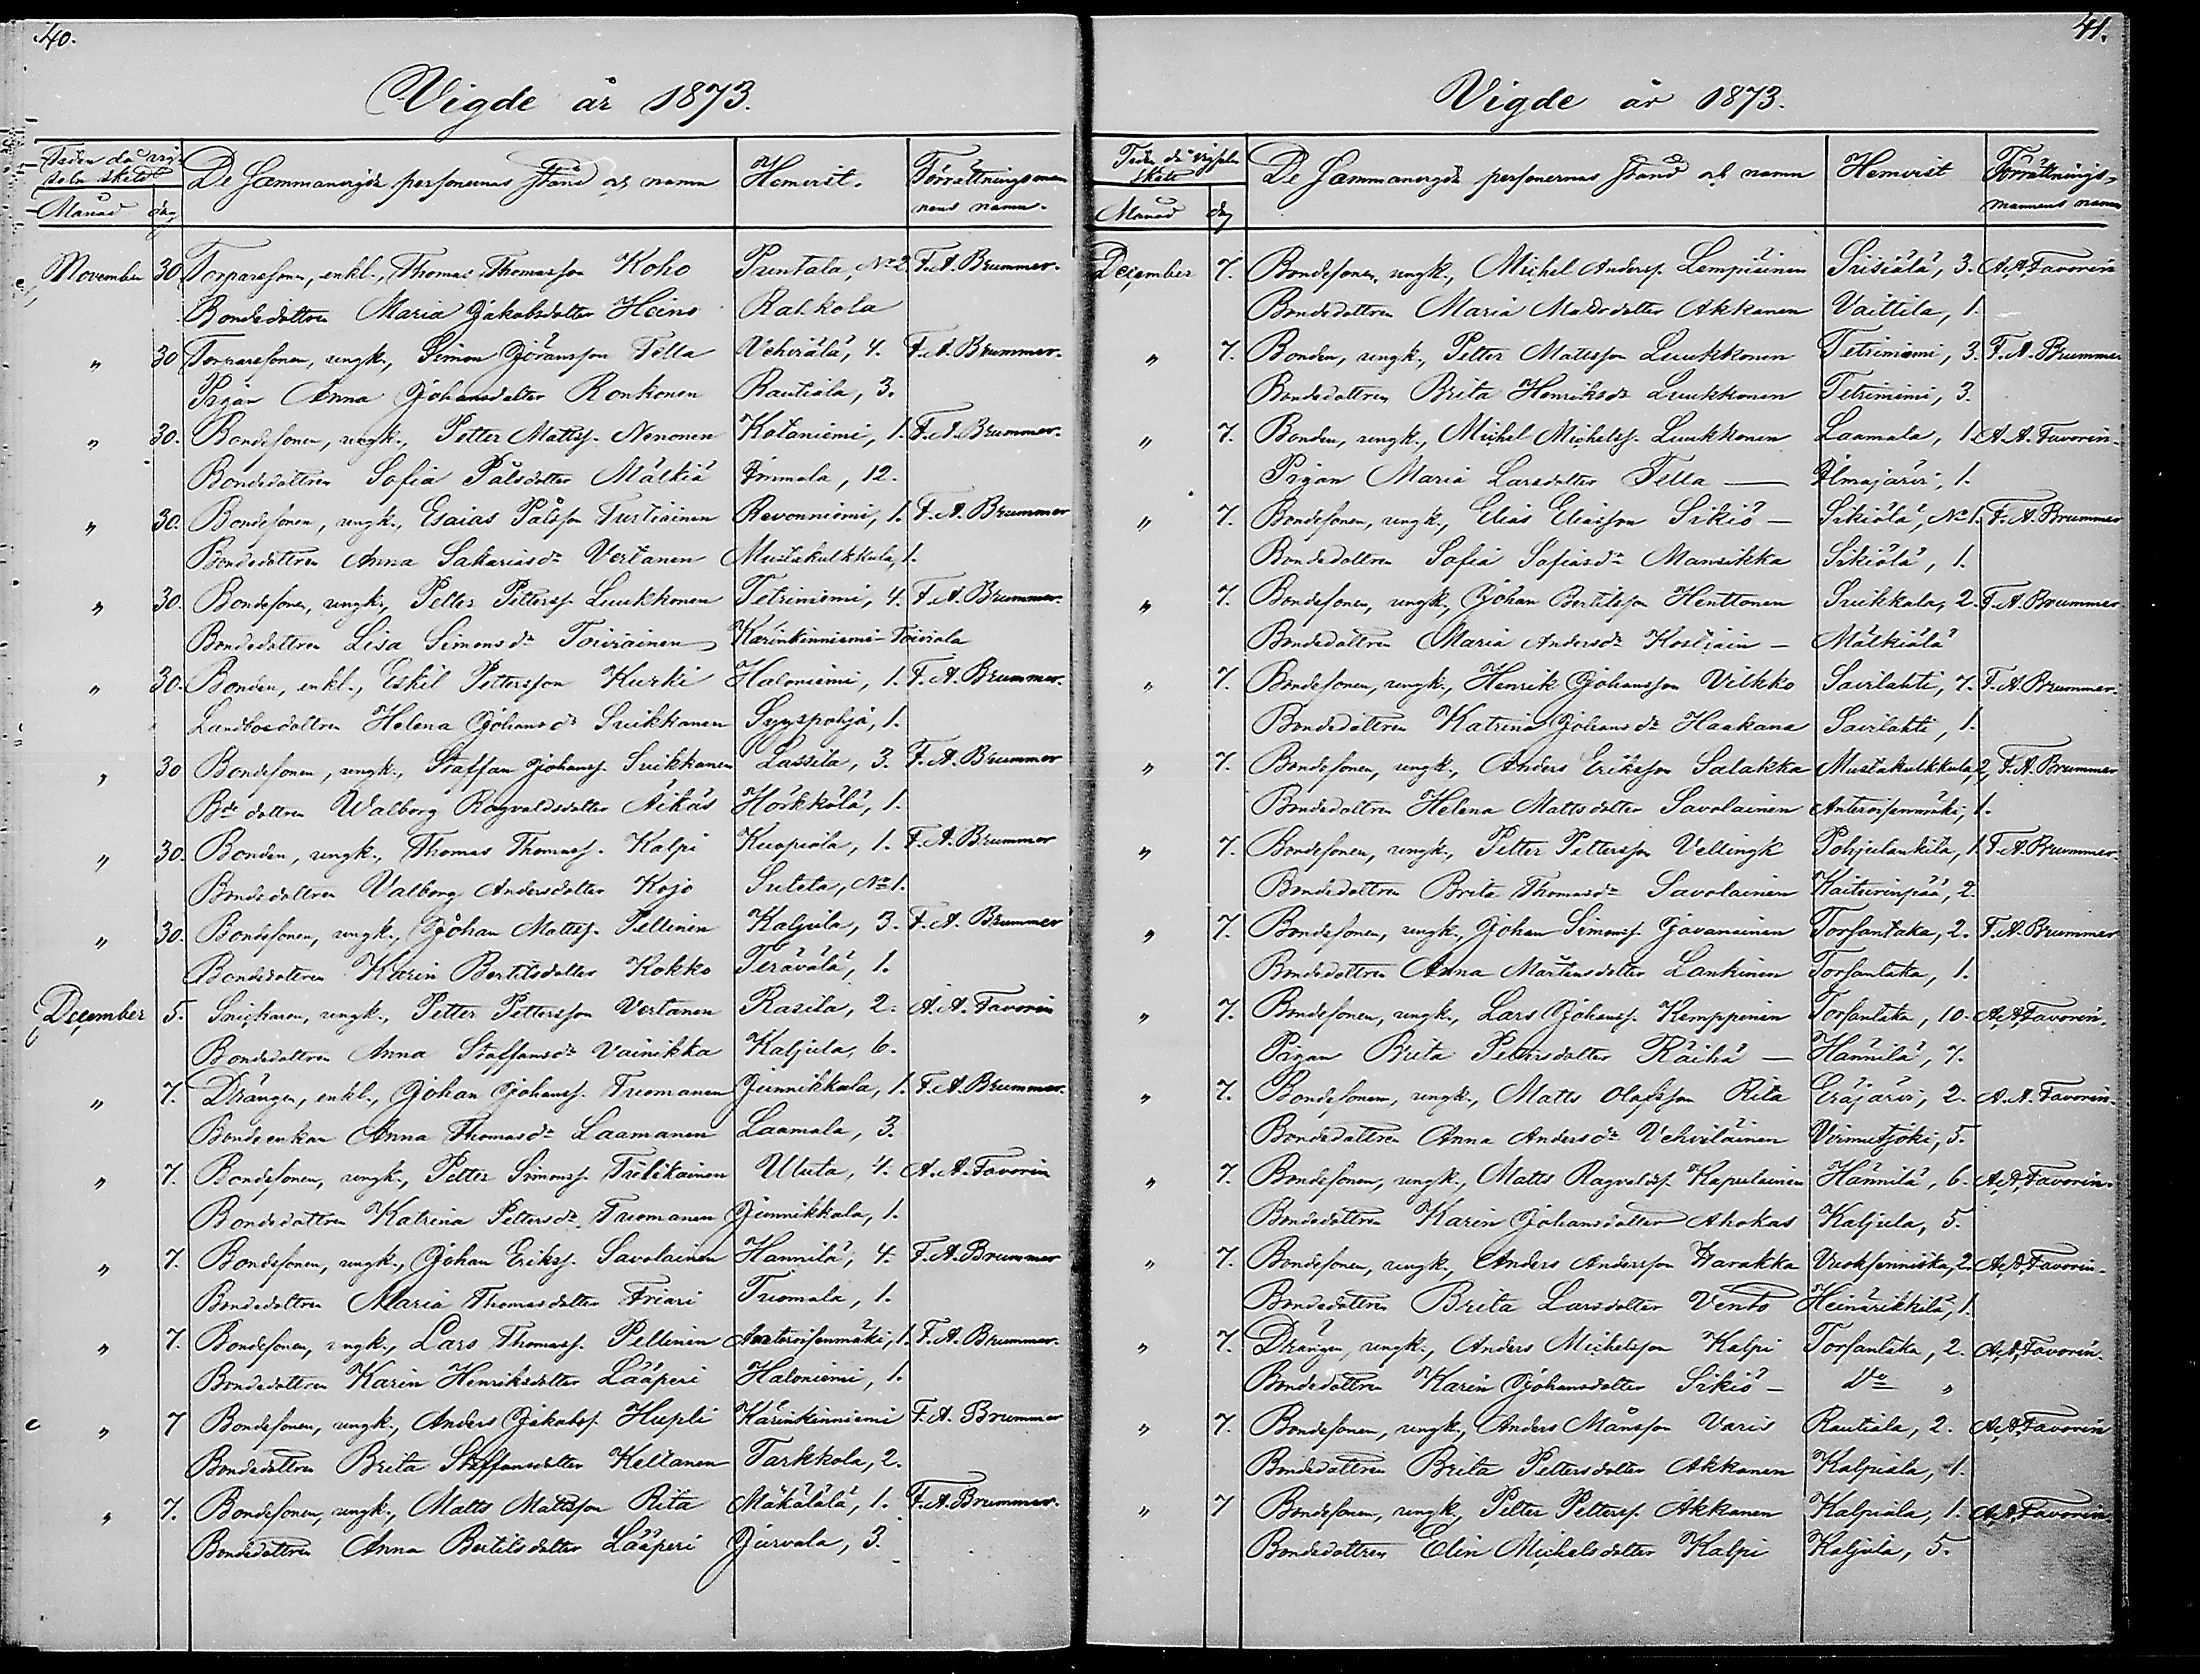 40.
Vigde år 1873.
Tiden då vig-
seln skett
Månad dag
De Sammanvigda personernas stånd och namn
Hemvist.
Förrättningsman
nens namn.
November 30. Torparesonen, enkl., Thomas Thomasson Koho Puntala, No 2 F. A. Brummer.
Bondedottren Maria Jakobsdotter Heino Rahkola
„ 30 Torparesonen, ungk., Simon Göransson Tella Vehviälä, 4. F. A. Brummer.
Pigan Anna Johansdotter Ronkonen Rautiala, 3.
„ 30. Bondesonen, ungk., Petter Mattss. Nenonen Kotaniemi, 1. F. A. Brummer.
Bondedottren Sofia Pålsdotter Mälkiä Immala, 12.
„ 30. Bondesonen, ungk., Esaias Pålsson Turtiainen Revonniemi, 1. F. A. Brummer
Bondedottren Anna Sakariasdr Vertanen Mustakulkkula, 1.
„ 30. Bondesonen, ungk., Petter Petterss. Luukkonen Tetriniemi, 4. F. A. Brummer.
Bondedottren Lisa Simonsdr Toiviainen Kärinkinniemi-Toiviala
„ 30. Bonden, enkl., Eskil Pettersson Kurki Haloniemi, 1. F. A. Brummer.
Landboedottren Helena Johansdr Suikkanen Syyspohja, 1.
„ 30 Bondesonen, ungk., Staffan Johanss. Suikkanen Lassila, 3. F. A. Brummer
Bde dottren Walborg Ragvaldsdotter Äikäs Hörkkölä, 1.
„ 30. Bonden, ungk., Thomas Thomass. Kalpi Kuapiala, 1. F. A. Brummer
Bondedottren Valborg Andersdotter Kojo Suteta, No 1.
„ 30. Bondesonen, ungk., Johan Mattss. Pellinen Kaljula, 3. F. A. Brummer
Bondedottren Karin Bertilsdotter Kokko Terävälä, 1.
December 5. Snickaren, ungk., Petter Pettersson Vertanen Rasila, 2. A. A. Favorin
Bondedottren Anna Staffansdr Vainikka Kaljula, 6.
„ 7. Drängen, enkl., Johan Johanss. Tuomanen Junnikkala, 1. F. A. Brummer.
Bondeenkan Anna Thomasdr Laamanen Laamala, 3.
„ 7. Bondesonen, ungk., Petter Simonss. Tulikainen Utula, 4. A. A. Favorin
Bondedottren Katrina Pettersdr Tuomanen Junnikkala, 1.
„ 7. Bondesonen, ungk., Johan Erikss. Savolainen Hannilä, 4. F. A. Brummer
Bondedottren Maria Thomasdotter Friari Tuomala, 1.
„ 7. Bondesonen, ungk., Lars Thomass. Pellinen Anteroisenmäki, 1. F. A. Brummer.
Bondedottren Karin Henriksdotter Lääperi Haloniemi, 1.
„ 7 Bondesonen, ungk., Anders Jakobss. Hupli Kärinkinniemi F. A. Brummer
Bondedottren Brita Staffansdotter Keltanen Tarkkola, 2.
„ 7. Bondesonen, ungk., Matts Mattsson Rita Mäkälälä, 1. F. A. Brummer.
Bondedottren Anna Bertilsdotter Lääperi Jurvala, 3.
41.
Vigde år 1873.
Tiden då vigseln
skett
Månad dag
De Sammanvigda personernas stånd och namn
Hemvist
Förrättnings-
mannens namn
December 7. Bondesonen, ungk., Michel Anderss. Lempiäinen Sisiälä, 3. A. A. Favorin
Bondedottren Maria Mattsdotter Akkanen Vaittila, 1.
„ 7. Bonden, ungk., Petter Mattsson Luukkonen Tetriniemi, 3. F. A. Brummer
Bondedottren Brita Henriksdr Luukkonen Tetriniemi, 3.
„ 7. Bonden, ungk., Michel Michelss. Luukkonen Laamala, 1. A. A. Favorin.
Pigan Maria Larsdotter Tella — Ilmajärvi, 1.
„ 7. Bondesonen, ungk., Elias Eliasson Sikiö — Sikiölä, No 1. F. A. Brummer
Bondedottren Sofia Sofiasdr Mansikka Sikiölä, 1.
„ 7. Bondesonen, ungk., Johan Bertilsson Henttonen Suikkala, 2. F. A. Brummer
Bondedottren Maria Andersdr Kostiain — Mälkiälä
„ 7. Bondesonen, ungk., Henrik Johansson Vilkko Savilahti, 7. F. A. Brummer.
Bondedottren Katrina Johansdr Haakana Savilahti, 1.
„ 7. Bondesonen, ungk., Anders Eriksson Salakka Mustakulkkula, 2, F. A. Brummer
Bondedottren Helena Mattsdotter Savolainen Anteroisenmäki, 1.
„ 7. Bondesonen, ungk., Petter Pettersson Vellingk Pohjalankila, 1 F. A. Brummer.
Bondedottren Brita Thomasdr Savolainen Kaiturinpää, 2.
„ 7. Bondesonen, ungk., Johan Simonss. Javanainen Torsantaka, 2. F. A. Brummer
Bondedottren Anna Mårtensdotter Lankinen Torsantaka, 1.
„ 7. Bondesonen, ungk., Lars Johanss. Kemppinen Torsantaka, 10. A. A. Favorin.
Pigan Brita Pettersdotter Räihä — Hännilä, 7.
„ 7. Bondesonen, ungk., Matts Olofsson Rita Eräjärvi, 2. A. A. Favorin.
Bondedottren Anna Andersdr Vehviläinen Virmutjoki, 5.
„ 7. Bondesonen, ungk., Matts Ragvaldss. Kapulainen Hännilä, 6. A. A. Favorin.
Bondedottren Karin Johansdotter Ahokas Kaljula, 5.
„ 7. Bondesonen, ungk., Anders Andersson Harakka Vuoksenniska, 2. A. A. Favorin.
Bondedottren Brita Larsdotter Vento Heinärikkilä, 1.
„ 7. Drängen, ungk., Anders Michelsson Kalpi Torsantaka, 2. A. A. Favorin.
Bondedottren Karin Johansdotter Sikiö — Do „
„ 7. Bondesonen, ungk., Anders Månsson Varis Rautiala, 2. A. A. Favorin
Bondedottren Brita Pettersdotter Akkanen Kalpiala, 1.
„ 7 Bondesonen, ungk., Petter Petterss. Akkanen Kalpiala, 1. A. A. Favorin
Bondedottren Elin Michelsdotter Kalpi Kaljula, 5.